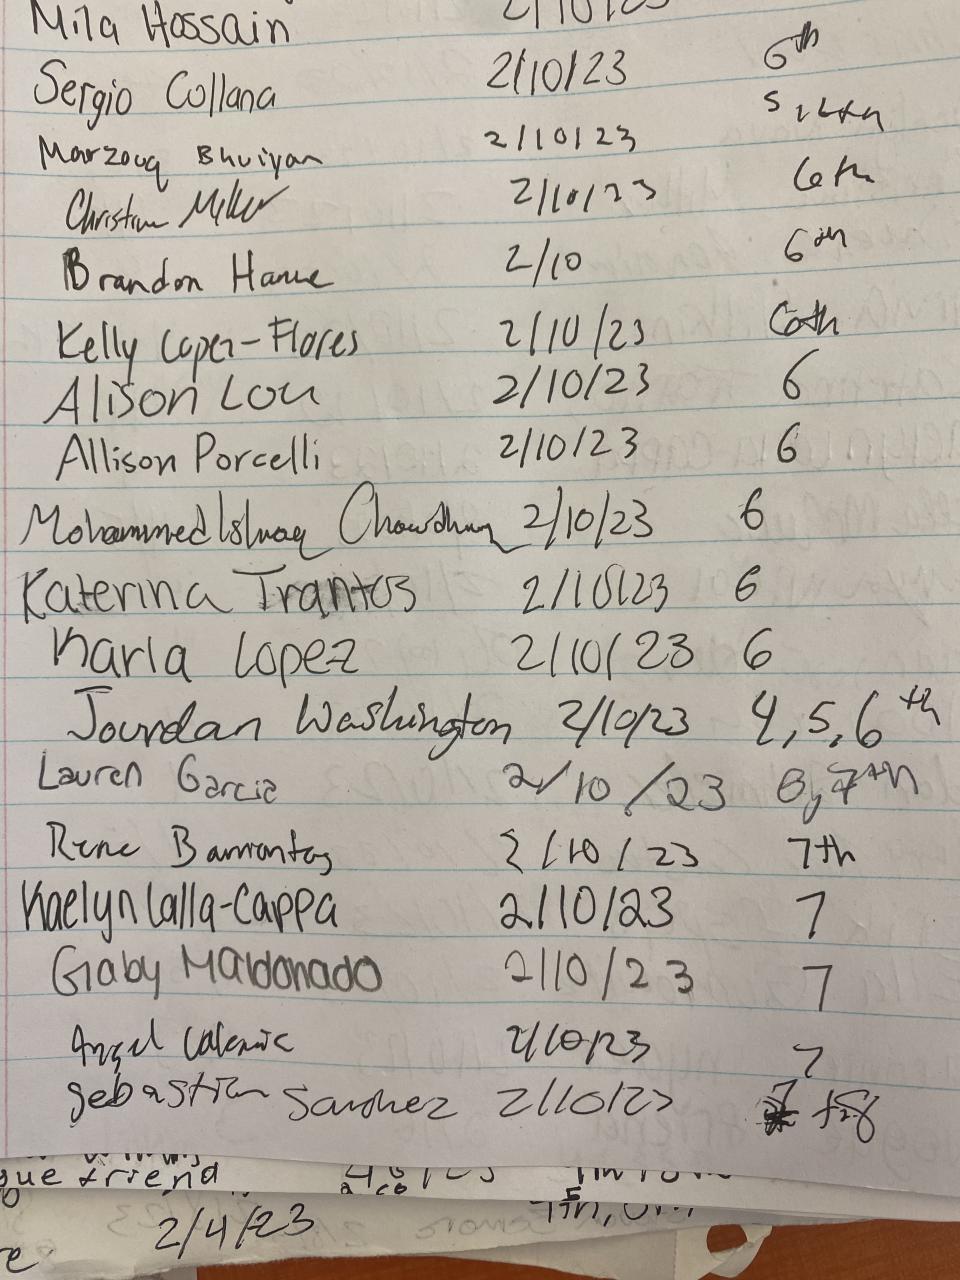 Mila Hossain 2/10/23
Sergio Collana 2/10/23 6th
Marzouq Bhuiyan 2/10/23 sixth
Christian Miller 2/10/23 6th
Brandon 2/10 6th
Kelly Loper-Flores 2/10/23 6th
Alison Lou 2/10/23 6
Allison Porcelli 2/10/23 6
Mohammed Ishraq Chowdhury 2/10/23 6
Katerina Trantos 2/10/23 6
Karla Lopez 2/10/23 6
Jourdan Washington 2/10/23 4,5,6th
Lauren Garcia 2/10/23 6,7th
Rene Barrantes 2/10/23 7th
Kaelyn Lalla-Cappa 2/10/23 7
Gaby Maldonado 2/10/23 7
Angel 2/10/23 7
Sebastian Sanchez 2/10/23
friend
2/4/23